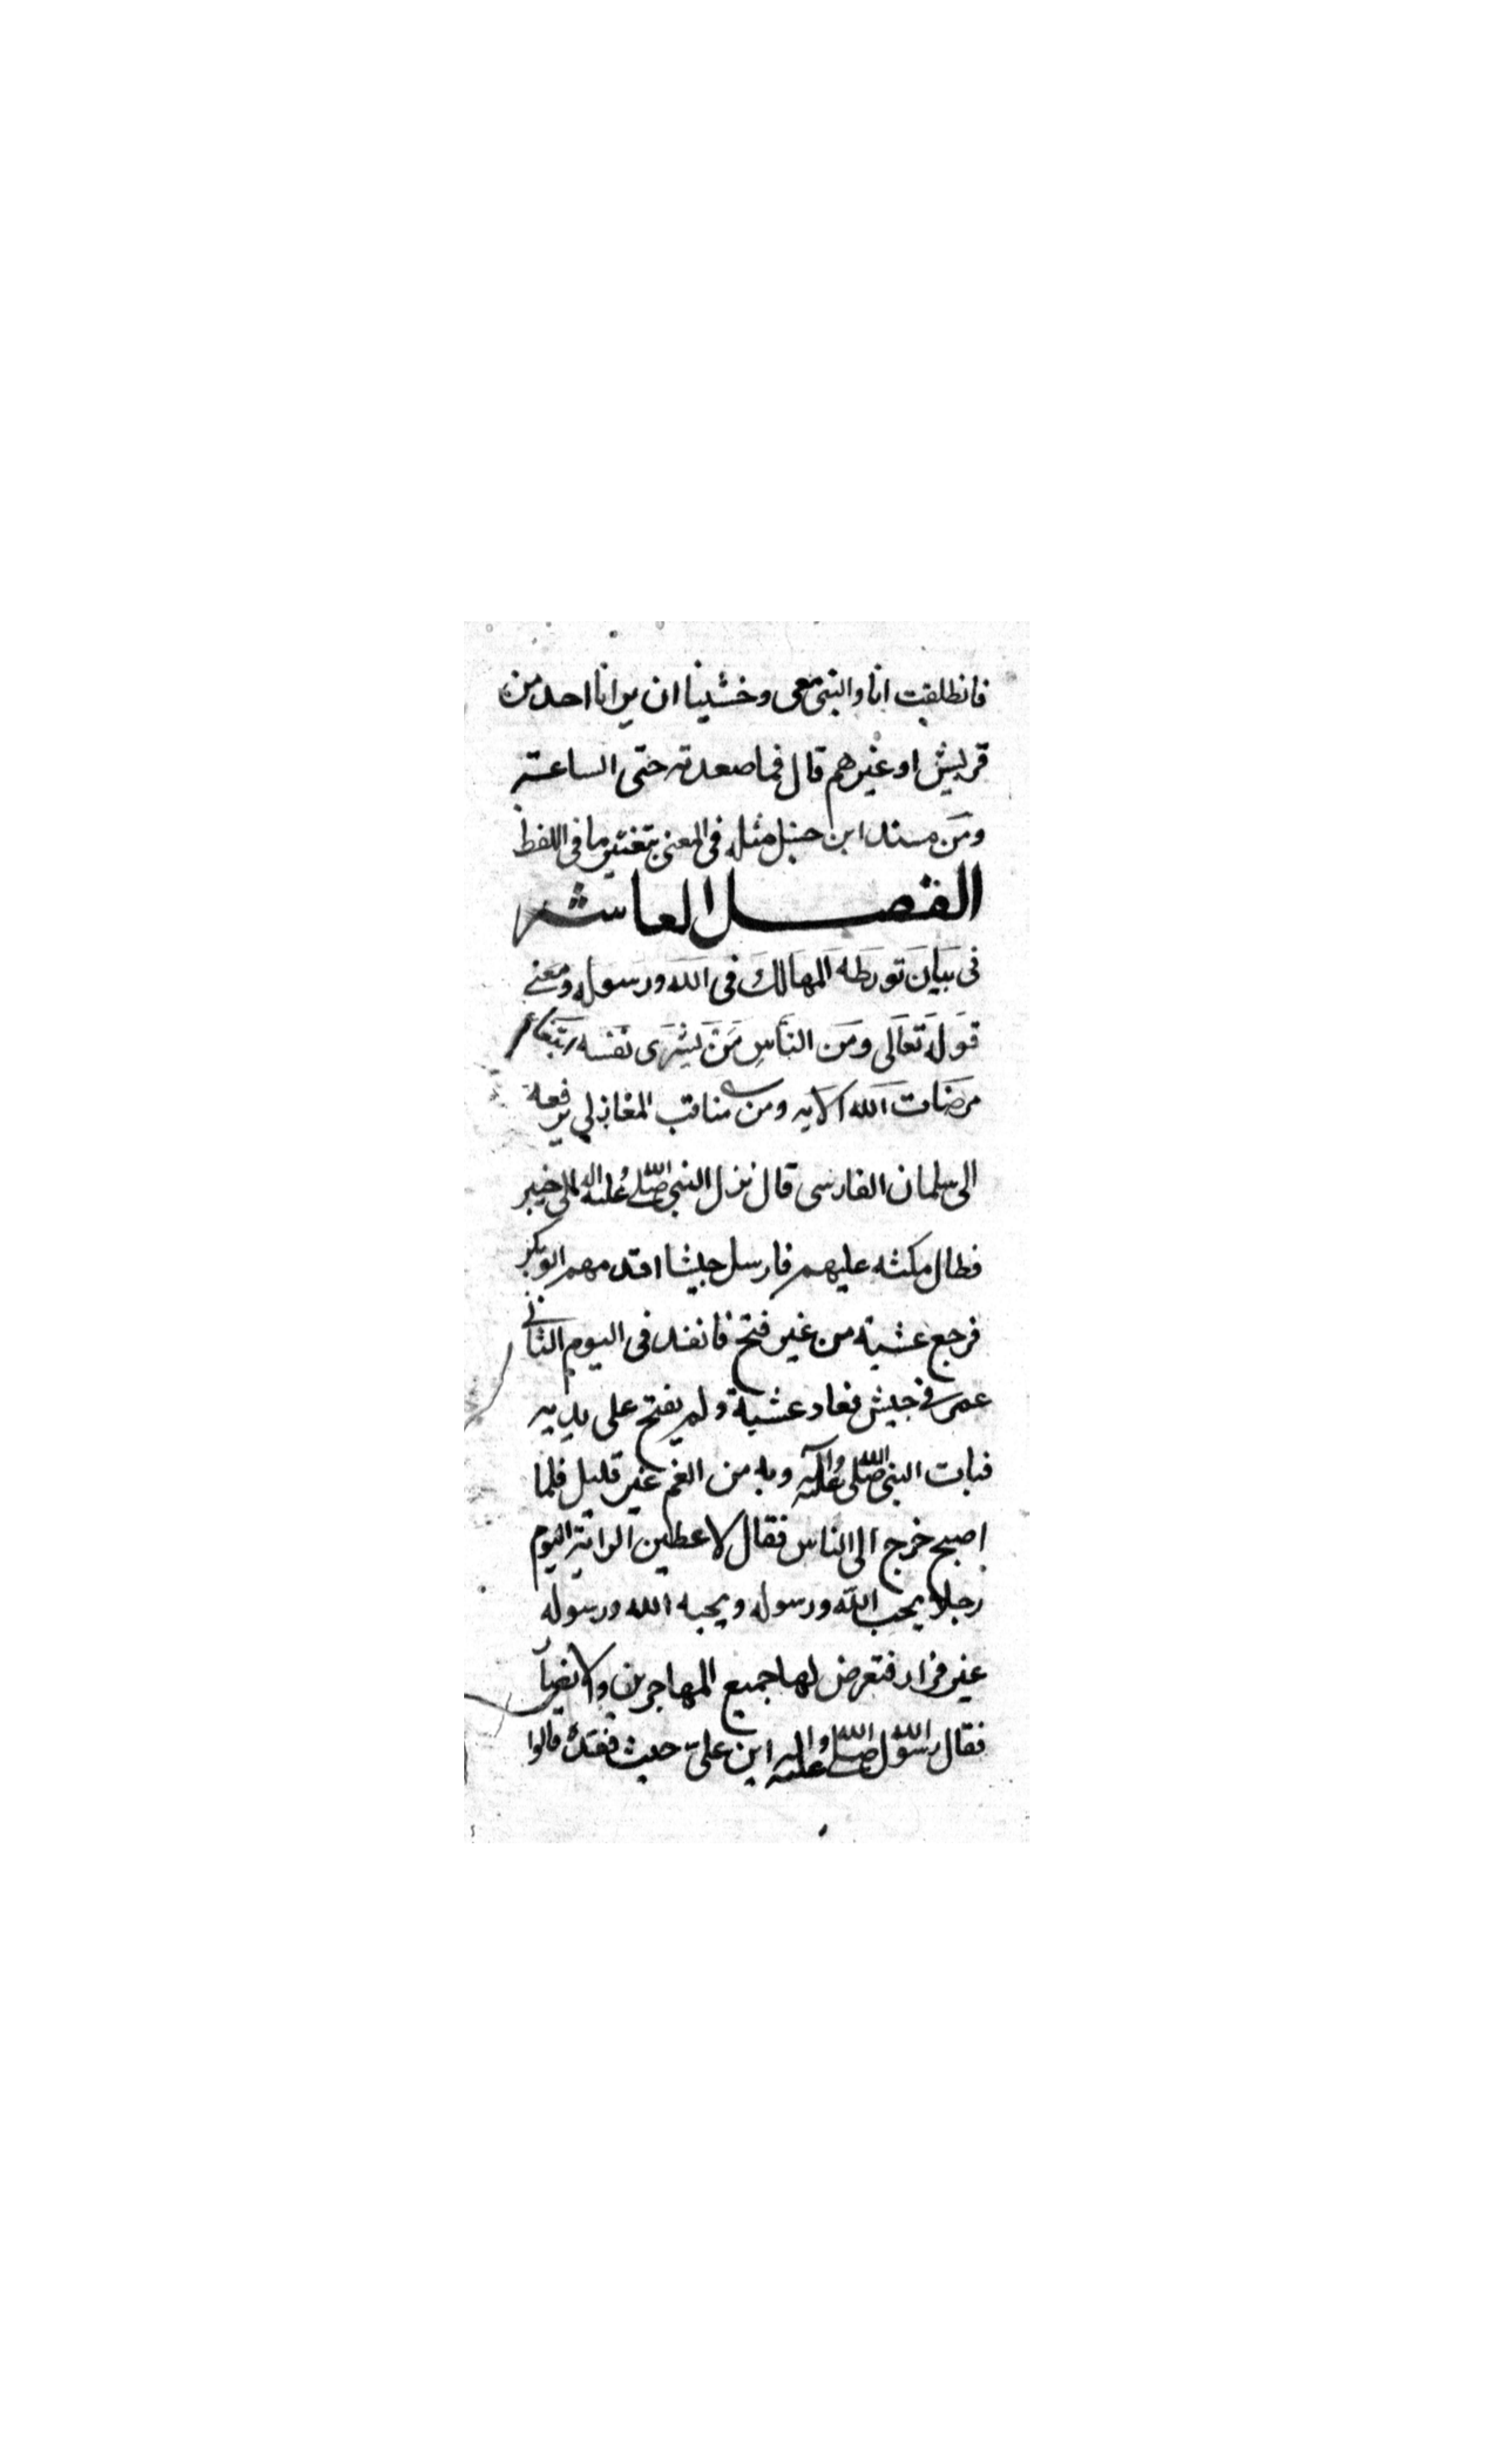 فانطلقت انا والنبي معي وخشينا ان يرانا احد من
قريش او غيرهم قال فما صعدته حتى الساعة
ومن مسند ابن حنبل مثله في المعنى بتغيير ما في اللفظ
الفصل العاشر
في بيان تورطه المهالك في الله ورسوله ومعنى
قوله تعالى ومن الناس من يشرى نفسه ابتغاء
مرضات الله الايه ومن مناقب المغازلي يرفعه
الى سلمان الفارسى قال نزل النبي صلى الله عليه واله على خيبر
فطال مكثه عليهم فارسل جيشا اقدمهم ابو بكر
فرجع عشية من غير فتح فانفذ في اليوم الثاني
عمر في جيش فعاد عشية ولم يفتح على يديه
فبات النبي صلى الله عليه وآله وبه من الغم غير قليل فلما
اصبح خرج الى الناس فقال لاعطين الراية اليوم
رجلا يحب الله ورسوله ويحبه الله ورسوله
غير فرار فتعرض لها جميع المهاجرين والانصار
فقال رسول الله صلى الله عليه واله اين علي حيث فقده قالوا